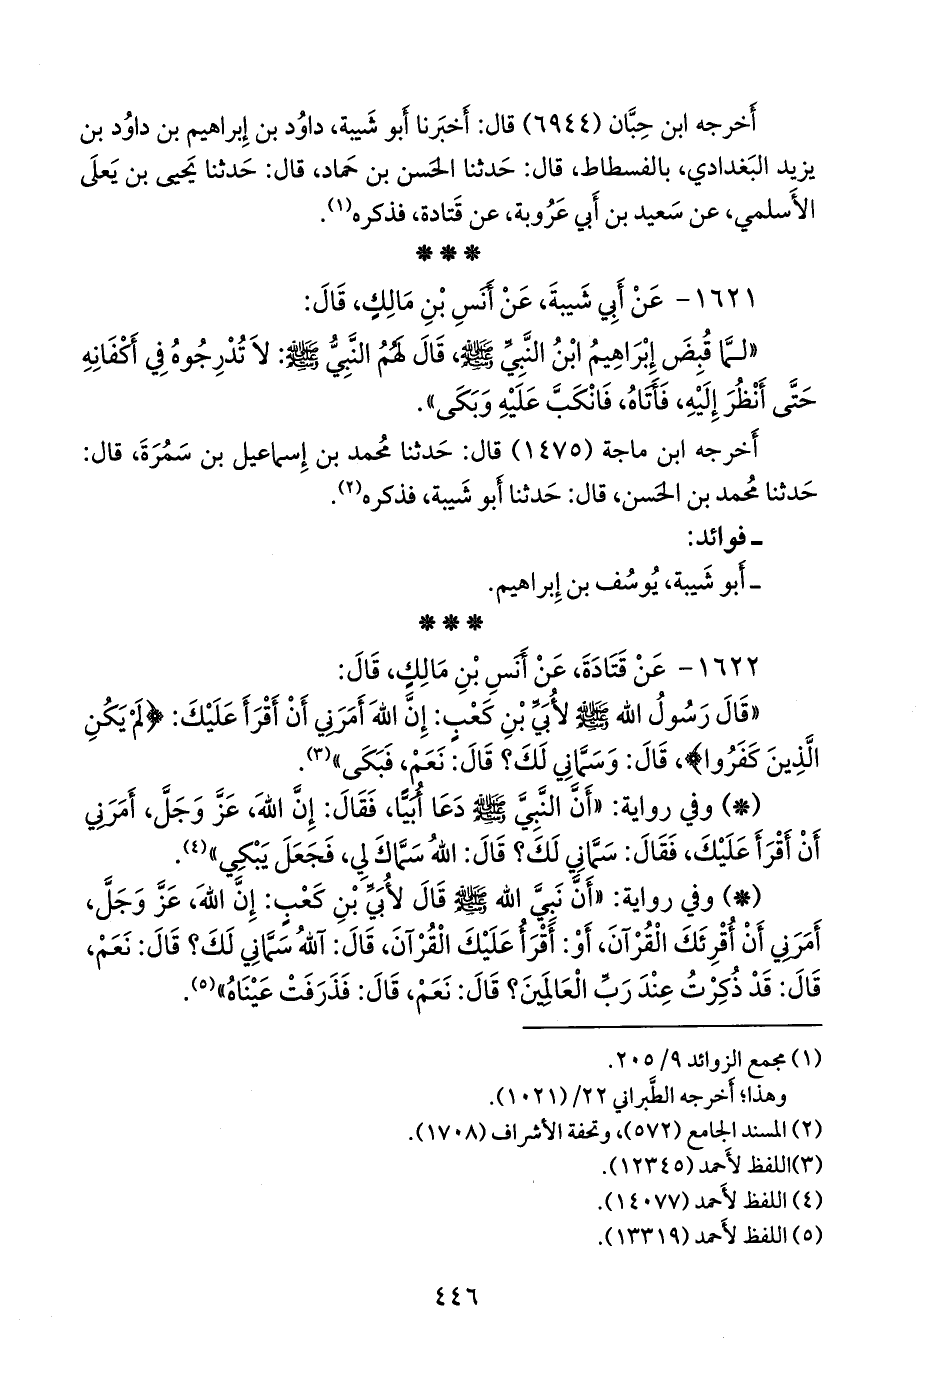 أَخرجه ابن حِبَّان (٦٩٤٤) قال: أَخبَرنا أَبو شَيبة، داوُد بن إِبراهيم بن داوُد بن
يزيد البَغدادي، بالفسطاط، قال: حَدثنا الحَسن بن حَماد، قال: حَدثنا يَحيى بن يَعلَى
الأَسلمي، عن سَعيد بن أَبي عَرُوبة، عن قَتادة، فذكره(١).
* * *
١٦٢١- عَنْ أَبِي شَيبةَ، عَنْ أَنَسِ بْنِ مَالِكٍ، قَالَ:
«لَـمَّا قُبِضَ إِبْرَاهِيمُ ابْنُ النَّبِيِّ ﷺ، قَالَ لَهُمُ النَّبِيُّ ﷺ: لاَ تُدْرِجُوهُ فِي أَكْفَانِهِ
حَتَّى أَنْظُرَ إِلَيْهِ، فَأَتَاهُ، فَانْكَبَّ عَلَيْهِ وَبَكَى».
أَخرجه ابن ماجة (١٤٧٥) قال: حَدثنا مُحمد بن إِسماعيل بن سَمُرَةَ، قال:
حَدثنا مُحمد بن الحَسن، قال: حَدثنا أَبو شَيبة، فذكره(٢).
ـ فوائد:
ـ أَبو شَيبة، يُوسُف بن إِبراهيم.
* * *
١٦٢٢- عَنْ قَتَادَةَ، عَنْ أَنَسِ بْنِ مَالِكٍ، قَالَ:
«قَالَ رَسُولُ الله ﷺ لأُبَيِّ بْنِ كَعْبٍ: إِنَّ اللهَ أَمَرَنِي أَنْ أَقْرَأَ عَلَيْكَ: ﴿لَمْ يَكُنِ
الَّذِينَ كَفَرُوا﴾، قَالَ: وَسَمَّانِي لَكَ؟ قَالَ: نَعَمْ، فَبَكَى»(٣).
(*) وفي رواية: «أَنَّ النَّبِيَّ ﷺ دَعَا أُبَيًّا، فَقَالَ: إِنَّ اللهَ، عَزَّ وَجَلَّ، أَمَرَنِي
أَنْ أَقْرَأَ عَلَيْكَ، فَقَالَ: سَمَّانِي لَكَ؟ قَالَ: اللهُ سَمَّاكَ لِي، فَجَعَلَ يَبْكِي»(٤).
(*) وفي رواية: «أَنَّ نَبِيَّ الله ﷺ قَالَ لأُبَيِّ بْنِ كَعْبٍ: إِنَّ اللهَ، عَزَّ وَجَلَّ،
أَمَرَنِي أَنْ أُقْرِئَكَ الْقُرْآنَ، أَوْ: أَقْرَأُ عَلَيْكَ الْقُرْآنَ، قَالَ: آللهُ سَمَّانِي لَكَ؟ قَالَ: نَعَمْ،
قَالَ: قَدْ ذُكِرْتُ عِنْدَ رَبِّ الْعَالَمِينَ؟ قَالَ: نَعَمْ، قَالَ: فَذَرَفَتْ عَيْنَاهُ»(٥).
(١) مجمع الزوائد ٩/ ٢٠٥.
وهذا؛ أَخرجه الطَّبراني ٢٢/ (١٠٢١).
(٢) المسند الجامع (٥٧٢)، وتحفة الأشراف (١٧٠٨).
(٣)اللفظ لأَحمد (١٢٣٤٥).
(٤) اللفظ لأَحمد (١٤٠٧٧).
(٥) اللفظ لأَحمد (١٣٣١٩).
٤٤٦